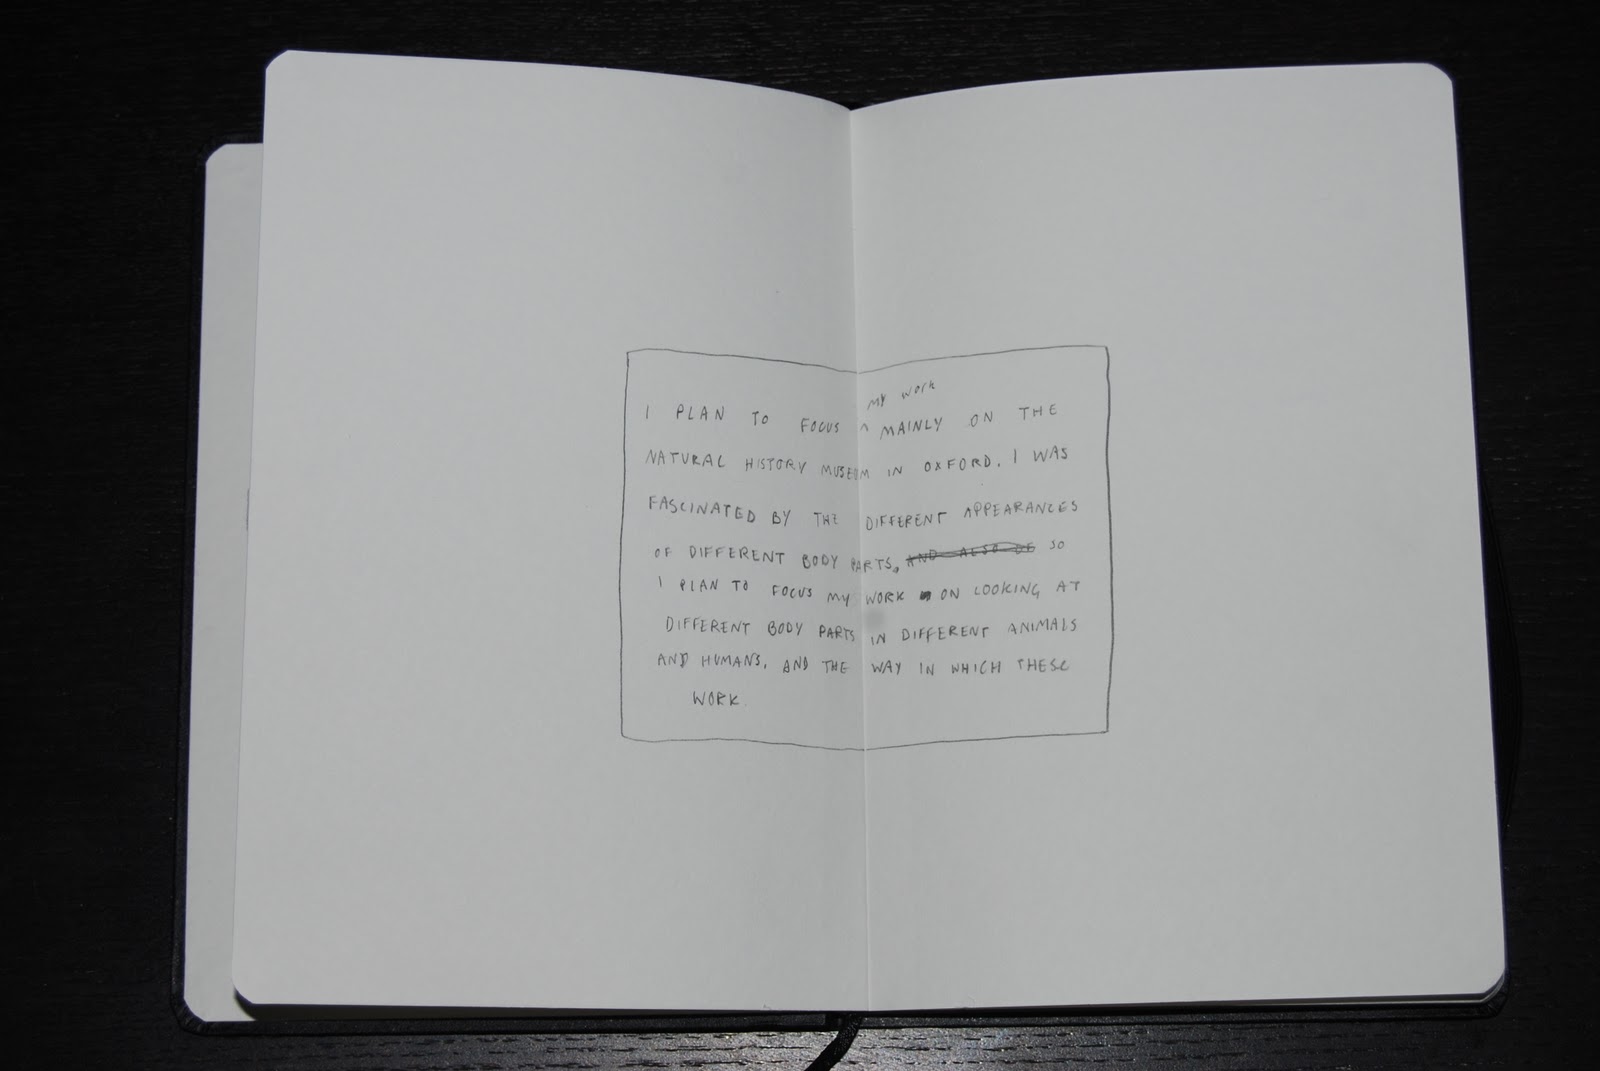 I PLAN TO FOCUS ^ MY WORK MAINLY ON THE
NATURAL HISTORY MUSEUM IN OXFORD. I WAS
FASCINATED BY THE DIFFERENT APPEARANCES
OF DIFFERENT BODY PARTS, AND ALSO OF SO
I PLAN TO FOCUS MY WORK ON LOOKING AT
DIFFERENT BODY PARTS IN DIFFERENT ANIMALS
AND HUMANS, AND THE WAY IN WHICH THESE
WORK.